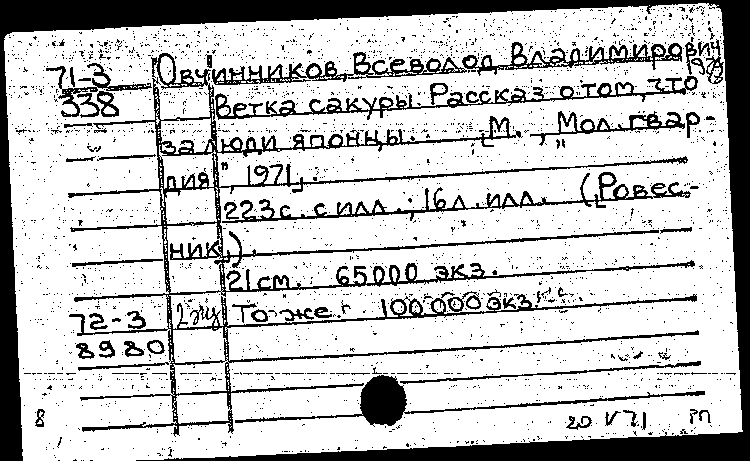 71-3 Овчинников, Всеволод Владимирович
338 Ветка сакуры. Рассказ о том, что
за люди японцы. [М., „Мол. гвар-
дия", 1971].
223 с. с илл.; 16 л. илл. („Ровес-
ник").
21 см. 65000 экз.
72-3 2 экз То же. 100 000 экз.
8980
8 20 V 71